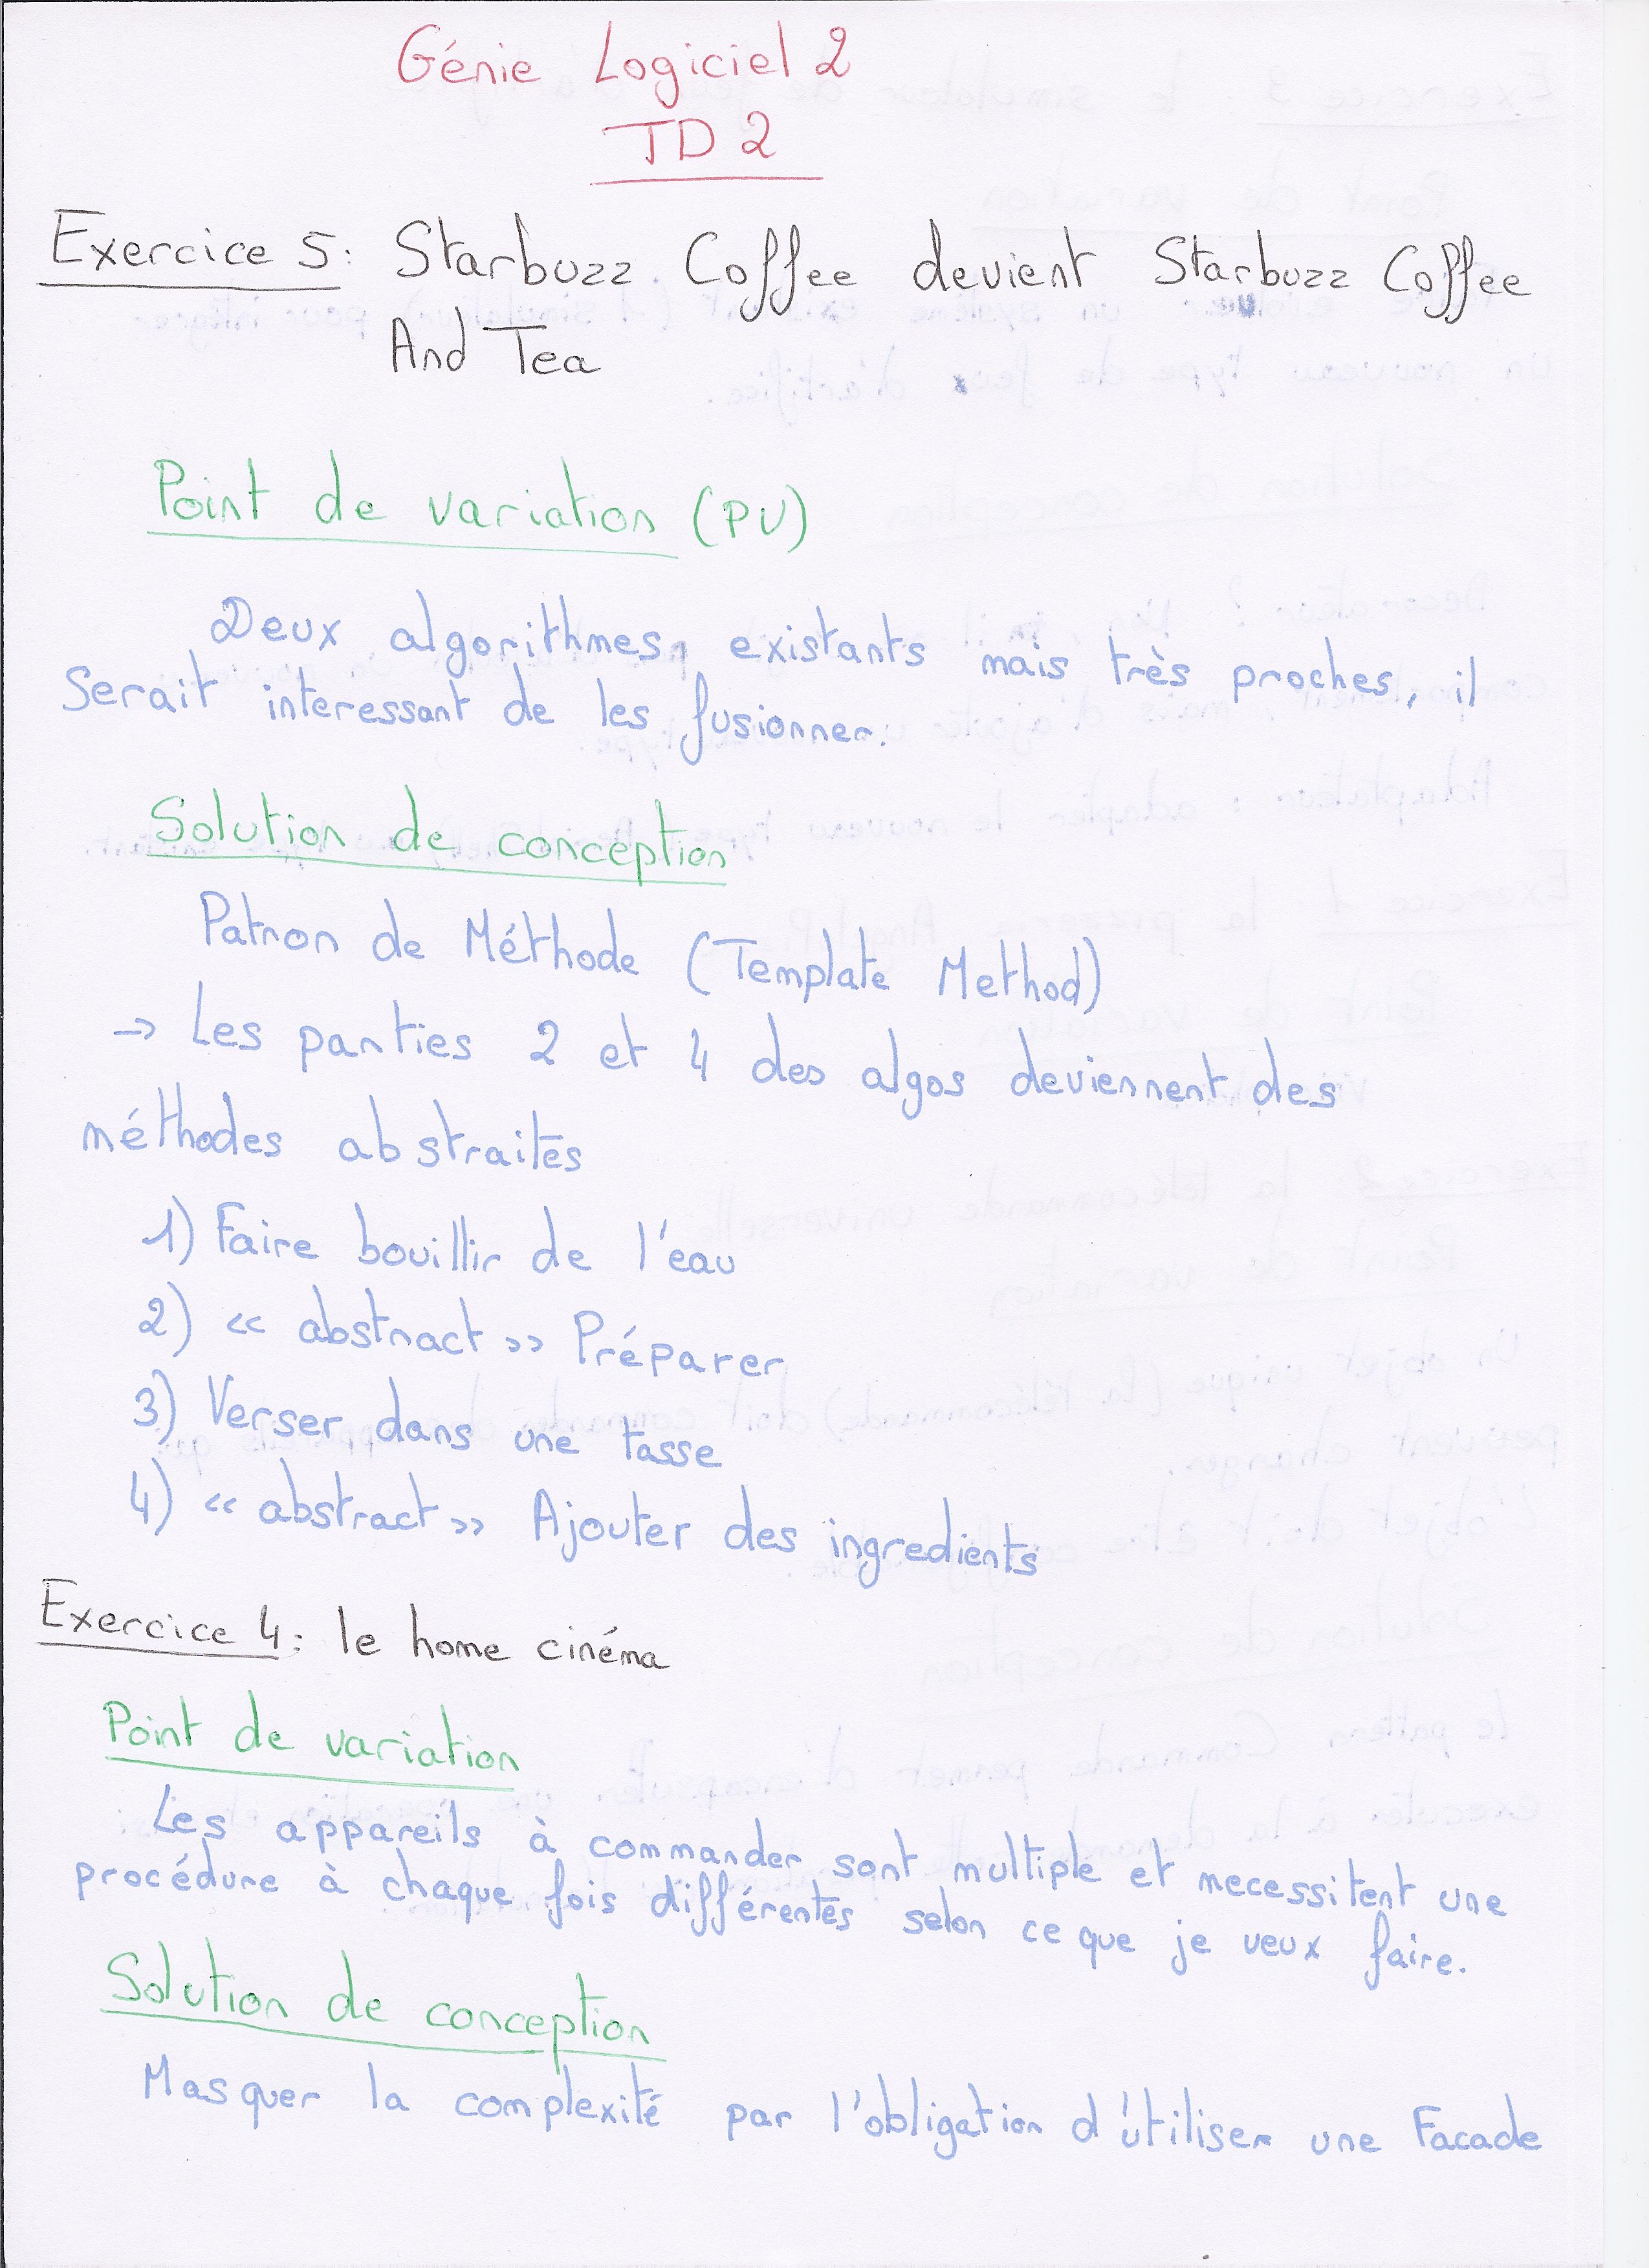 Génie Logiciel 2
TD 2
Exercice 5: Starbuzz Coffee devient Starbuzz Coffee
And Tea
Point de variation (PV)
Deux algorithmes existants mais très proches, il
serait interessant de les fusionner.
Solution de conception
Patron de Méthode (Template Method)
→ Les parties 2 et 4 des algos deviennent des
méthodes abstraites
1) Faire bouillir de l'eau
2) « abstract » Préparer
3) Verser dans une tasse
4) « abstract » Ajouter des ingredients
Exercice 4: le home cinéma
Point de variation
Les appareils à commander sont multiple et necessitent une
procédure à chaque fois différentes selon ce que je veux faire.
Solution de conception
Masquer la complexité par l'obligation d'utiliser une Facade